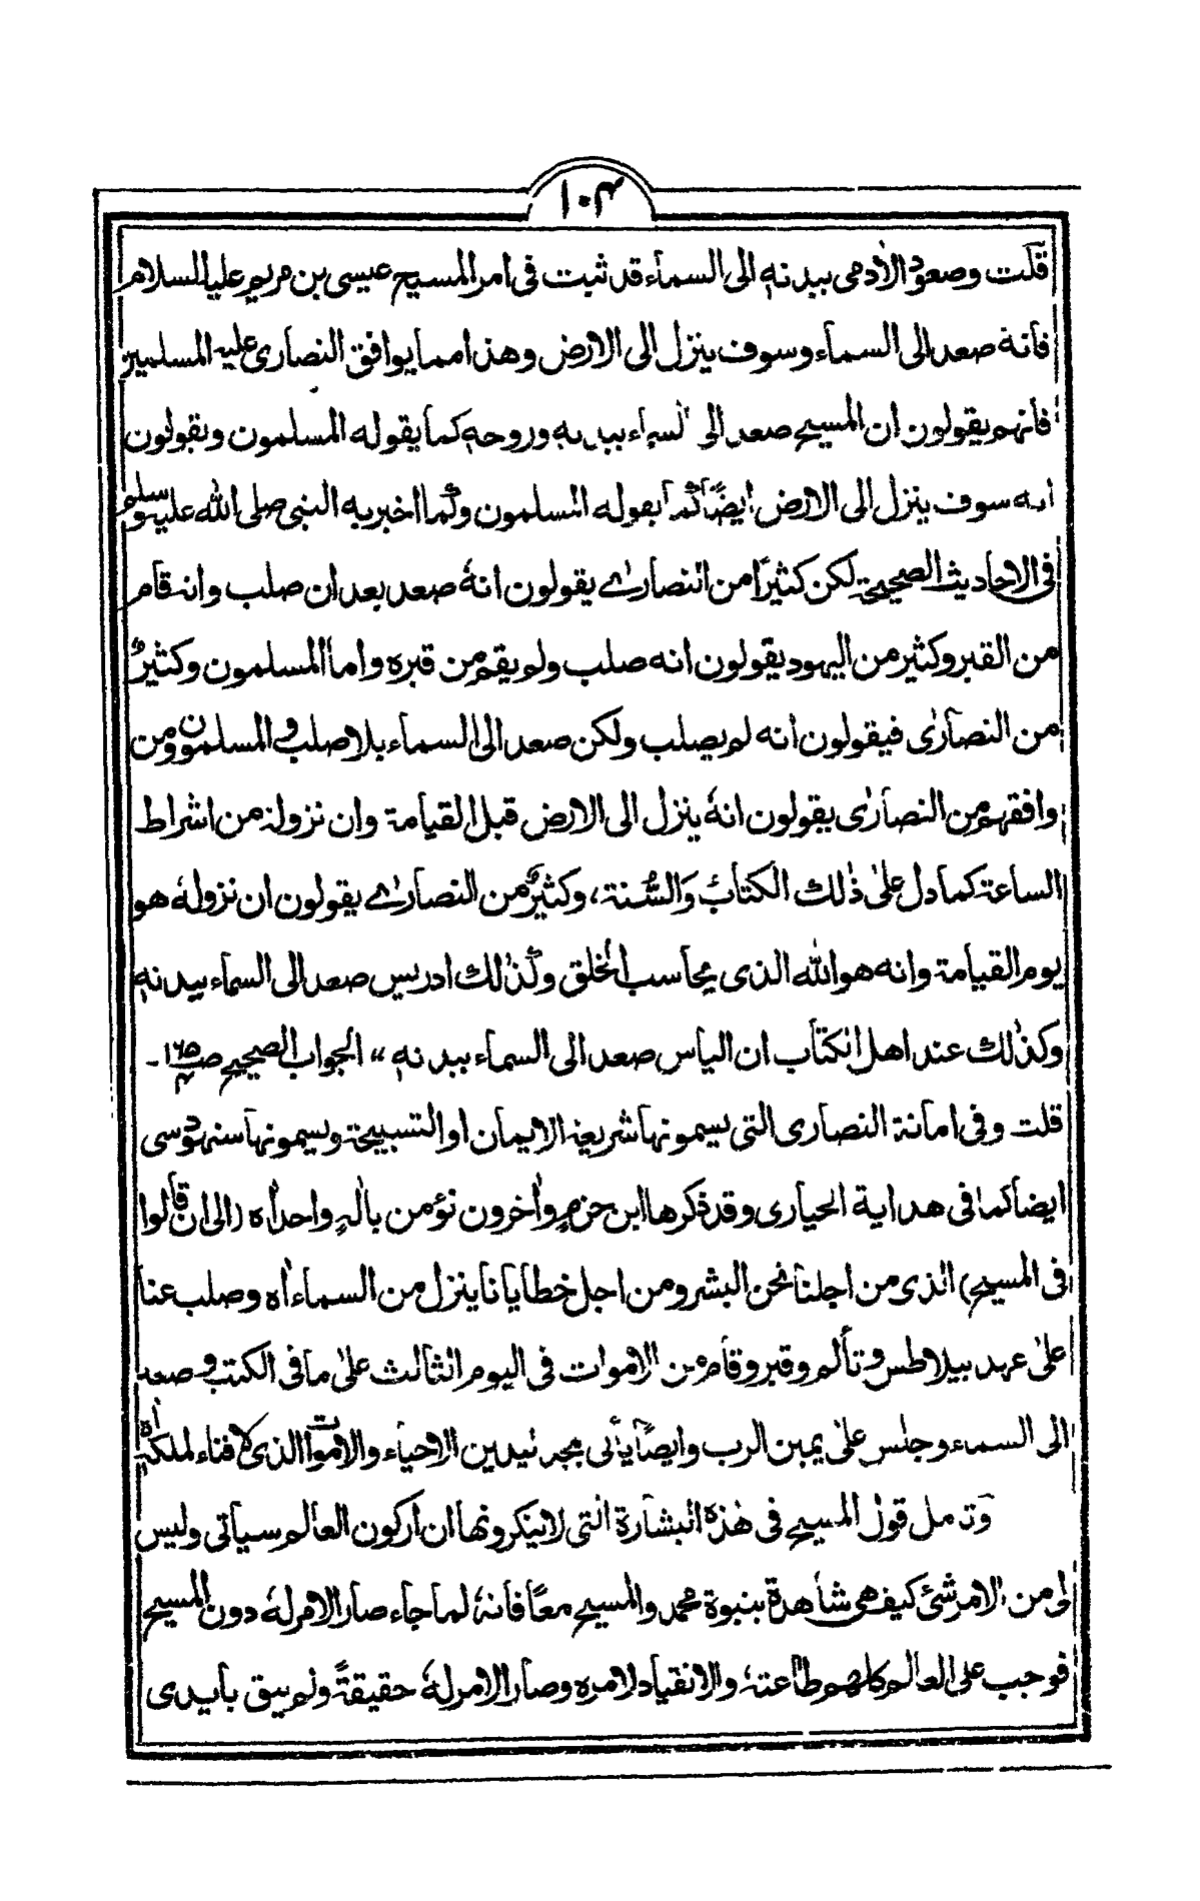 ١٠٤
قلت وصعود الأدمى ببدنه الى السماء قد ثبت فى امر المسيح عيسى بن مريم عليه السلام
فانه صعد الى السماء وسوف ينزل الى الارض وهذا مما يوافق النصارى عليه المسلمين
فانهم يقولون ان المسيح صعد الى السماء ببدنه وروحه كما يقوله المسلمون ويقولون
انه سوف ينزل الى الارض ايضًا كما يقوله المسلمون وكما اخبر به النبى صلى الله عليه وسلم
فى الاحاديث الصحيحة لكن كثيرًا من النصارى يقولون انهٗ صعد بعد ان صلب وانه قام
من القبر وكثير من اليهود يقولون انه صلب ولم يقم من قبره واما المسلمون وكثيرٌ
من النصارٰى فيقولون انه لم يصلب ولكن صعد الى السماء بلا صلب والمسلمون ومن
وافقهم من النصارٰى يقولون انهٗ ينزل الى الارض قبل القيامة وان نزوله من اشراط
الساعة كما دل علىٰ ذٰلك الكتابُ وَالسُّنة، وكثيرٌ من النصارٰى يقولون ان نزولهٗ هو
يوم القيامة وانه هو الله الذى يحاسب الخلق وكذٰلك ادريس صعد الى السماء ببدنه
وكذٰلك عند اهل الكتاب ان الياس صعد الى السماء ببدنه " الجواب الصحيح ص١٦٥ ج٤ -
قلت وفى امانة النصارى التى يسمونها شريعة الايمان او التسبيحة ويسمونها سنهودسى
ايضا كما فى هداية الحيارى وقد ذكرها ابن حزم واٰخرون نؤمن بالٰهٍ واحد اٰه (الى ان قالوا
فى المسيح) الذى من اجلنا نحن البشر ومن اجل خطايانا ينزل من السماء اٰه وصلب عنا
علىٰ عهد بيلاطس وتألم وقبر وقام من الاموات فى اليوم الثالث علىٰ ما فى الكتب وصعد
الى السماء وجلس علىٰ يمين الرب وايضًا يأتى بمجد ليدين الاحياء والاموات الذى لا فناء لملكه اٰه
وتأمل قول المسيح فى هٰذه البشارة التى لا ينكرونها ان اركون العالم سياتى وليس
لى من الامر شئ كيف هى شاهدة بنبوة محمد والمسيح معًا فانهٗ لما جاء صار الامر لهٗ دون المسيح
فوجب على العالم كلهم طاعتهٗ والانقياد لامره وصار الامر لهٗ حقيقةً ولم يبق بايدى